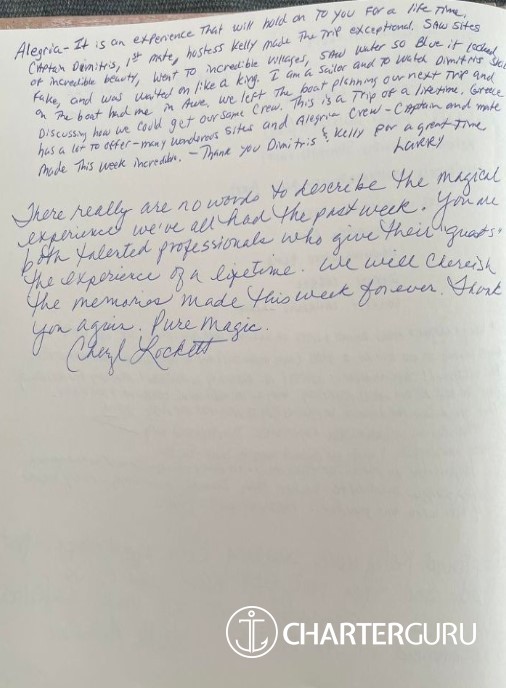 Alegria - It is an experience That will hold on To you For a life Time.
Captain Dimitris, 1st mate, hostess Kelly made The Trip exceptional. Saw sites
of incredible beauty, went To incredible villages, saw water so Blue it looked
fake, and was waited on like a king. I am a sailor and To watch Dimitris
on The boat had me in Awe. We left The boat planning our next Trip and
Discussing how we could get our same Crew. This is a Trip of a lifetime. Greece
has a lot To offer - many wonderous sites and Alegria Crew - Captain and mate
made This week incredible. - Thank you Dimitris & Kelly for a great Time
Larry
There really are no words to describe the magical
experience we've all had the past week. You are
both talented professionals who give their "guests"
the experience of a lifetime. We will cherish
the memories made this week forever. Thank
you again. Pure Magic.
Cheryl Lockett
CHARTERGURU